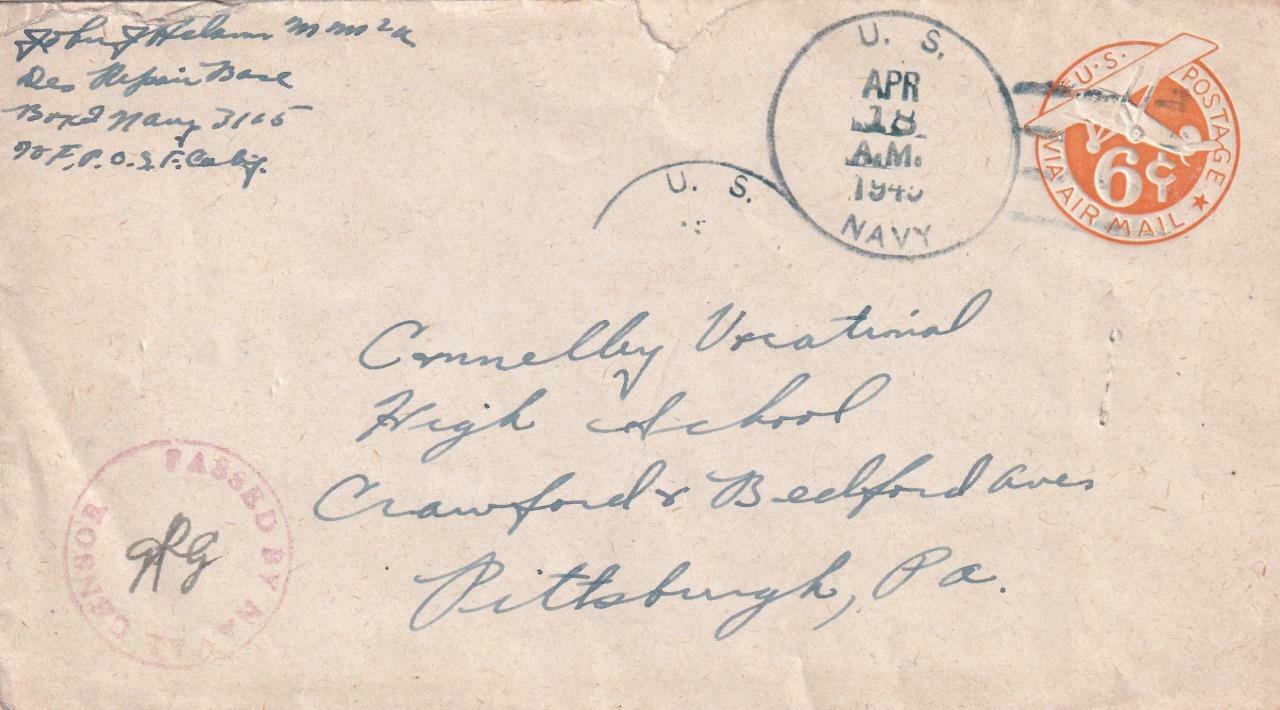 John J
Des Repair Base
Box 2 Navy 3165
℅ F.P.O. S.F. Calif.
U. S.
APR
18
A.M.
1945
NAVY
U. S.
U.S. POSTAGE
6¢
VIA AIR MAIL
Connelley Vocational
High School
Crawford & Bedford Aves
Pittsburgh, Pa.
PASSED BY NAVAL CENSOR